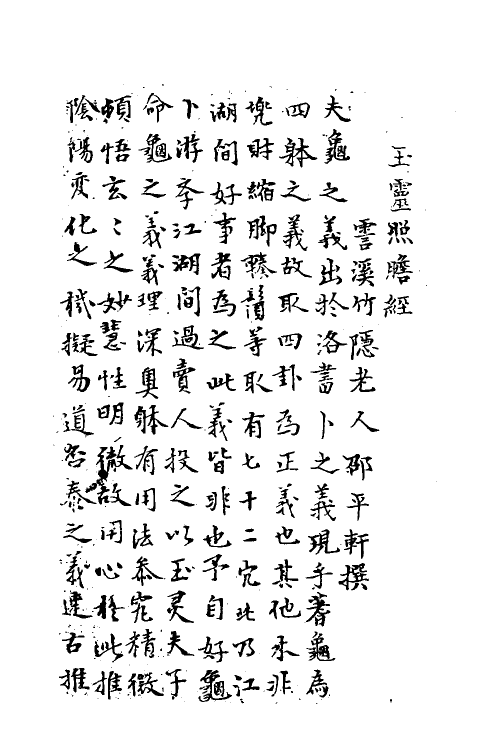 玉靈照膽經
雲溪竹隱老人邵平軒撰
夫龜之義出於洛書卜之義現乎蓍龜為
四躰之義故取四卦為正義也其他求非
兜財縮脚轃鬚等取有七十二宂此乃江
湖间好事者為之此義皆非也予自好龜
卜游孛江湖間過賣人投之以玉灵夫子
命龜之義義理深奥躰有用法叅究精微
頓悟玄々之妙慧性明徹故用心於此推
隂陽变化之機擬易道否泰之義達古推